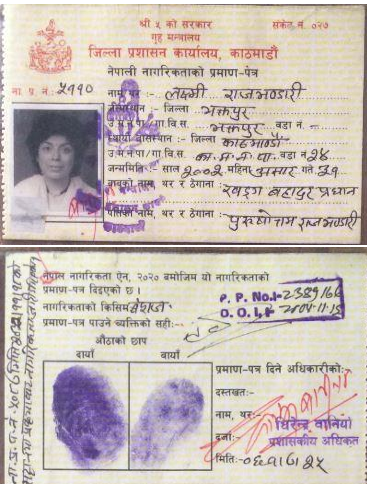 श्री ५ को सरकार
संकेत नं. ०२७
गृह मन्त्रालय
जिल्ला प्रशासन कार्यालय, काठमाडौं
नेपाली नागरिकताको प्रमाण-पत्र
ना. प्र. नं. ५११०
नाम थर :- लक्ष्मी राजभण्डारी
जन्मस्थान :- जिल्ला भक्तपुर
उ.म.न.पा./गा.वि.स. भक्तपुर वडा नं. -
स्थायी वासस्थान :- जिल्ला काठमाडौं
उ.म.न.पा./गा.वि.स. का.म.न.पा. वडा नं २४
जन्ममिति :- साल २००२ महिना असार गते ३१
बाबुको नाम, थर र ठेगाना :- बहादुर प्रधान
पतिको नाम, थर र ठेगाना :- पुरुषोत्तम राजभण्डारी
नेपाल नागरिकता ऐन, २०२० बमोजिम यो नागरिकताको
प्रमाण-पत्र दिइएको छ ।
नागरिकताको किसिम :- वंशज
प्रमाण-पत्र पाउने व्यक्तिको सही :-
P. P. No.:- 2389166
औंठाको छाप
दायाँ बायाँ
प्रमाण-पत्र दिने अधिकारीको :-
दस्तखत :-
नाम, थर :- धिरेन्द्र
दर्जा :- प्रशासकीय अधिकृत
मिति :-